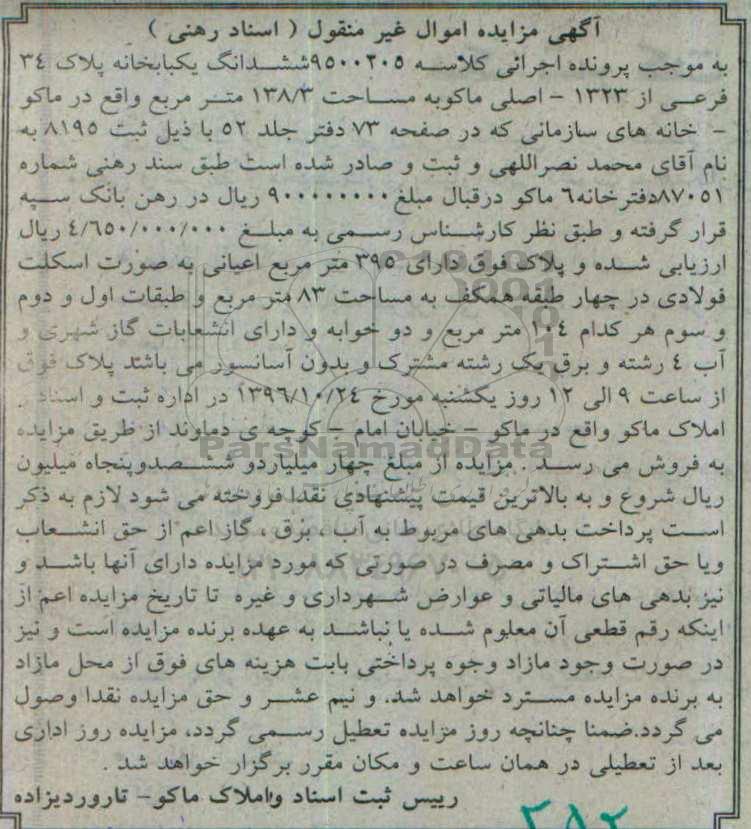 آگهی مزایده اموال غیر منقول ( اسناد رهنی )
به موجب پرونده اجرائی کلاسه ۹۵۰۰۲۰۵ششدانگ یکبابخانه پلاک ۳۴
فرعی از ۱۳۲۳ - اصلی ماکوبه مساحت ۱۳۸/۳ متر مربع واقع در ماکو
- خانه های سازمانی که در صفحه ۷۳ دفتر جلد ۵۲ با ذیل ثبت ۸۱۹۵ به
نام آقای محمد نصراللهی و ثبت و صادر شده است طبق سند رهنی شماره
۸۷۰۵۱دفترخانه۶ ماکو درقبال مبلغ ۹۰۰۰۰۰۰۰۰ ریال در رهن بانک سپه
قرار گرفته و طبق نظر کارشناس رسمی به مبلغ ۴/۶۵۰/۰۰۰/۰۰۰ ریال
ارزیابی شده و پلاک فوق دارای ۳۹۵ متر مربع اعیانی به صورت اسکلت
فولادی در چهار طبقه همکف به مساحت ۸۳ متر مربع و طبقات اول و دوم
و سوم هر کدام ۱۰۴ متر مربع و دو خوابه و دارای انشعابات گاز شهری و
آب ۴ رشته و برق یک رشته مشترک و بدون آسانسور می باشد پلاک فوق
از ساعت ۹ الی ۱۲ روز یکشنبه مورخ ۱۳۹۶/۱۰/۲۴ در اداره ثبت و اسناد و
املاک ماکو واقع در ماکو - خیابان امام - کوچه ی دماوند از طریق مزایده
ParsNamadData
به فروش می رسد . مزایده از مبلغ چهار میلیاردو ششصدوپنجاه میلیون
ریال شروع و به بالاترین قیمت پیشنهادی نقدا فروخته می شود لازم به ذکر
است پرداخت بدهی های مربوط به آب ، برق ، گاز اعم از حق انشعاب
ویا حق اشتراک و مصرف در صورتی که مورد مزایده دارای آنها باشد و
نیز بدهی های مالیاتی و عوارض شهرداری و غیره تا تاریخ مزایده اعم از
اینکه رقم قطعی آن معلوم شده یا نباشد به عهده برنده مزایده است و نیز
در صورت وجود مازاد وجوه پرداختی بابت هزینه های فوق از محل مازاد
به برنده مزایده مسترد خواهد شد. و نیم عشر و حق مزایده نقدا وصول
می گردد.ضمنا چنانچه روز مزایده تعطیل رسمی گردد، مزایده روز اداری
بعد از تعطیلی در همان ساعت و مکان مقرر برگزار خواهد شد .
رییس ثبت اسناد واملاک ماکو- تاروردیزاده
۲۸۲